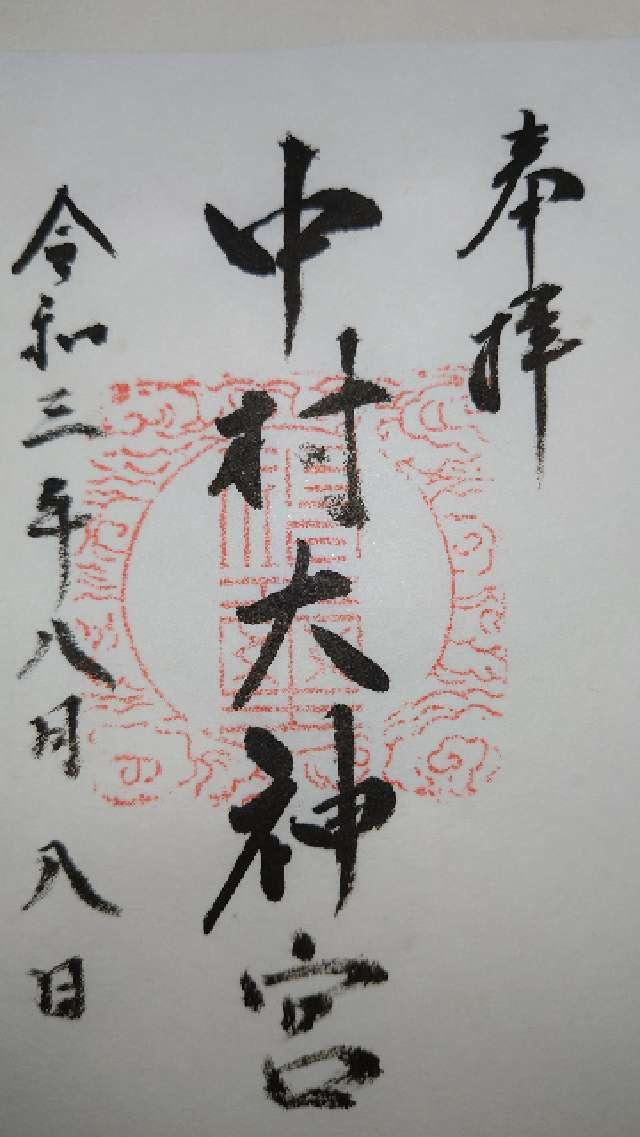 奉拝
中村大神宮
令和三年八月八日